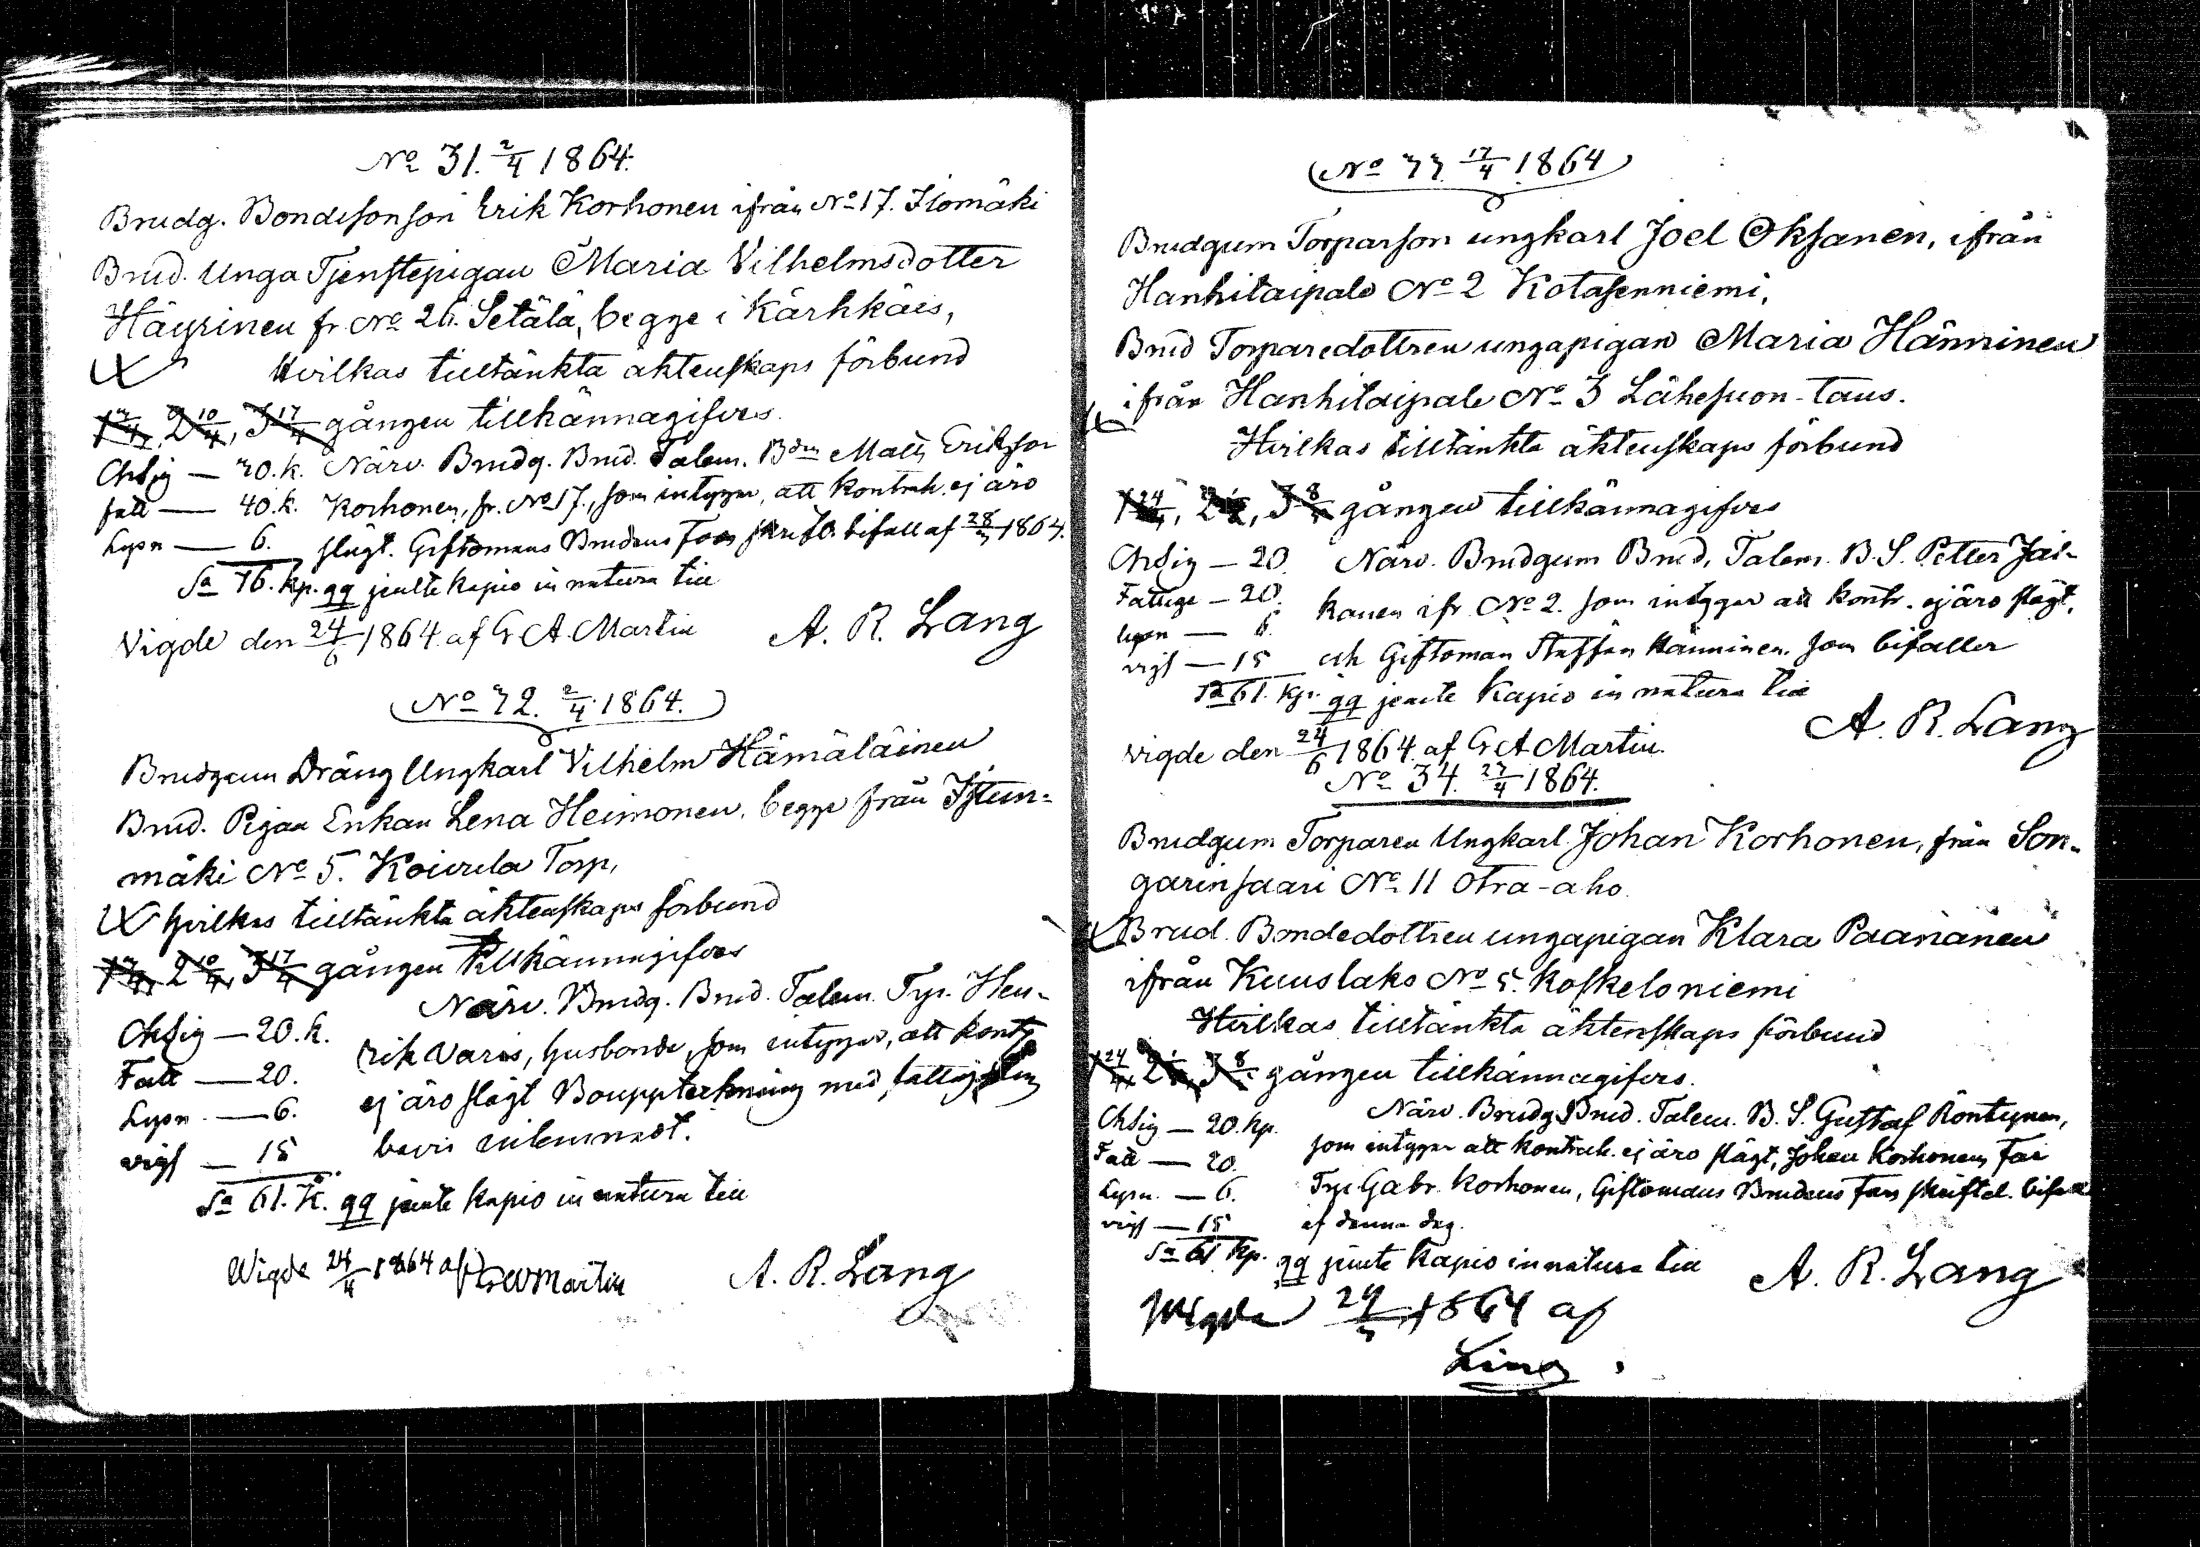 No 31. 2/4 1864.
Brudg. Bondesonson Erik Korhonen ifrån No 17. Ilomäki
Brud. Unga Tjenstepigan Maria Vilhelmsdotter
Häyrinen fr. No 26. Setälä, begge i Kärhkäis,
Hvilkas tilltänkta äktenskaps förbund
2 10/4, 3 17/4 gången tillkännagifves.
40. k. Närv. Brudg. Brud. Talem. Matts Erikson
fatt — 40. k. Korhonen, fr. No 17, som intygar, att kontrah. ej äro
Lysn — 6. slägt. Giftomans Brudens Fars bifall af 1864.
Sa kp. qq jemte kapio in natura till
Vigde den 24/6 1864 af G A. Martin A. R. Lang
No 32. 2/4 1864.
Brudgum Dräng Ungkarl Vilhelm Hämäläinen
Brud. Pigan Enkan Lena Heimonen, begge från Istun-
mäki No 5. Koivula Torp,
hvilkas tilltänkta äktenskaps förbund
2 10/4, 3 17/4 gången tillkännagifves
Närv. Brudg. Brud. Talem. Tp. Hen-
— 20. k. rik Varis, husbonde, som intygar, att kontr
Fatt — 20. ej äro slägt Bouppteckning med
Lysn — 6. bevis inlemnadt.
vigs — 15
Sa 61. K. qq jemte kapio in natura till
Wigde 24/4 1864 af Martin A. R. Lang
No 33. 17/4 1864
Brudgum Torparson ungkarl Joel Oksanen, ifrån
Hanhitaipale No 2 Kotasenniemi,
Brud Torparedottren ungapigan Maria Hänninen
ifrån Hanhitaipale No 3 Lähesuon-taus.
Hvilkas tilltänkta äktenskaps förbund
1 24/4, 3 8/5 gången tillkännagifves
— 20. Närv. Brudgum Brud, Talem. B. S. Petter Jäs-
Fattige — 20. kanen ifr. No 2. som intygar att kontr. ej äro slägt,
lysn — 6. och Giftoman Staffan Hänninen. som bifaller
vigs — 15
Sa 61. kp. qq jemte Kapio in natura till
A. R. Lang
vigde den 24/6 1864 af G A Martin.
No 34. 1864.
Brudgum Torparen Ungkarl Johan Korhonen, från Son-
garinsaari No 11 Otra-aho.
Brud. Bondedottren ungapigan Klara Paananen
ifrån Kuuslaks No 5. Koskeloniemi
Hvilkas tilltänkta äktenskaps förbund
1 24/4 3 8/5 gången tillkännagifves.
Närv. Brudg. Brud. Talem. B. S. Gustaf Röntynen,
— 20. kp. som intygar att kontrah. ej äro slägt, Johan Korhonens Far
Fatt — 20. Tp. Gabr. Korhonen, Giftomans Brudens Fars skriftel. bifall
Lysn. — 6. af denna dag.
vigs — 15
Sa 61 kp. qq jemte kapio in natura till
A. R. Lang
Wigde 1864 af
Lang